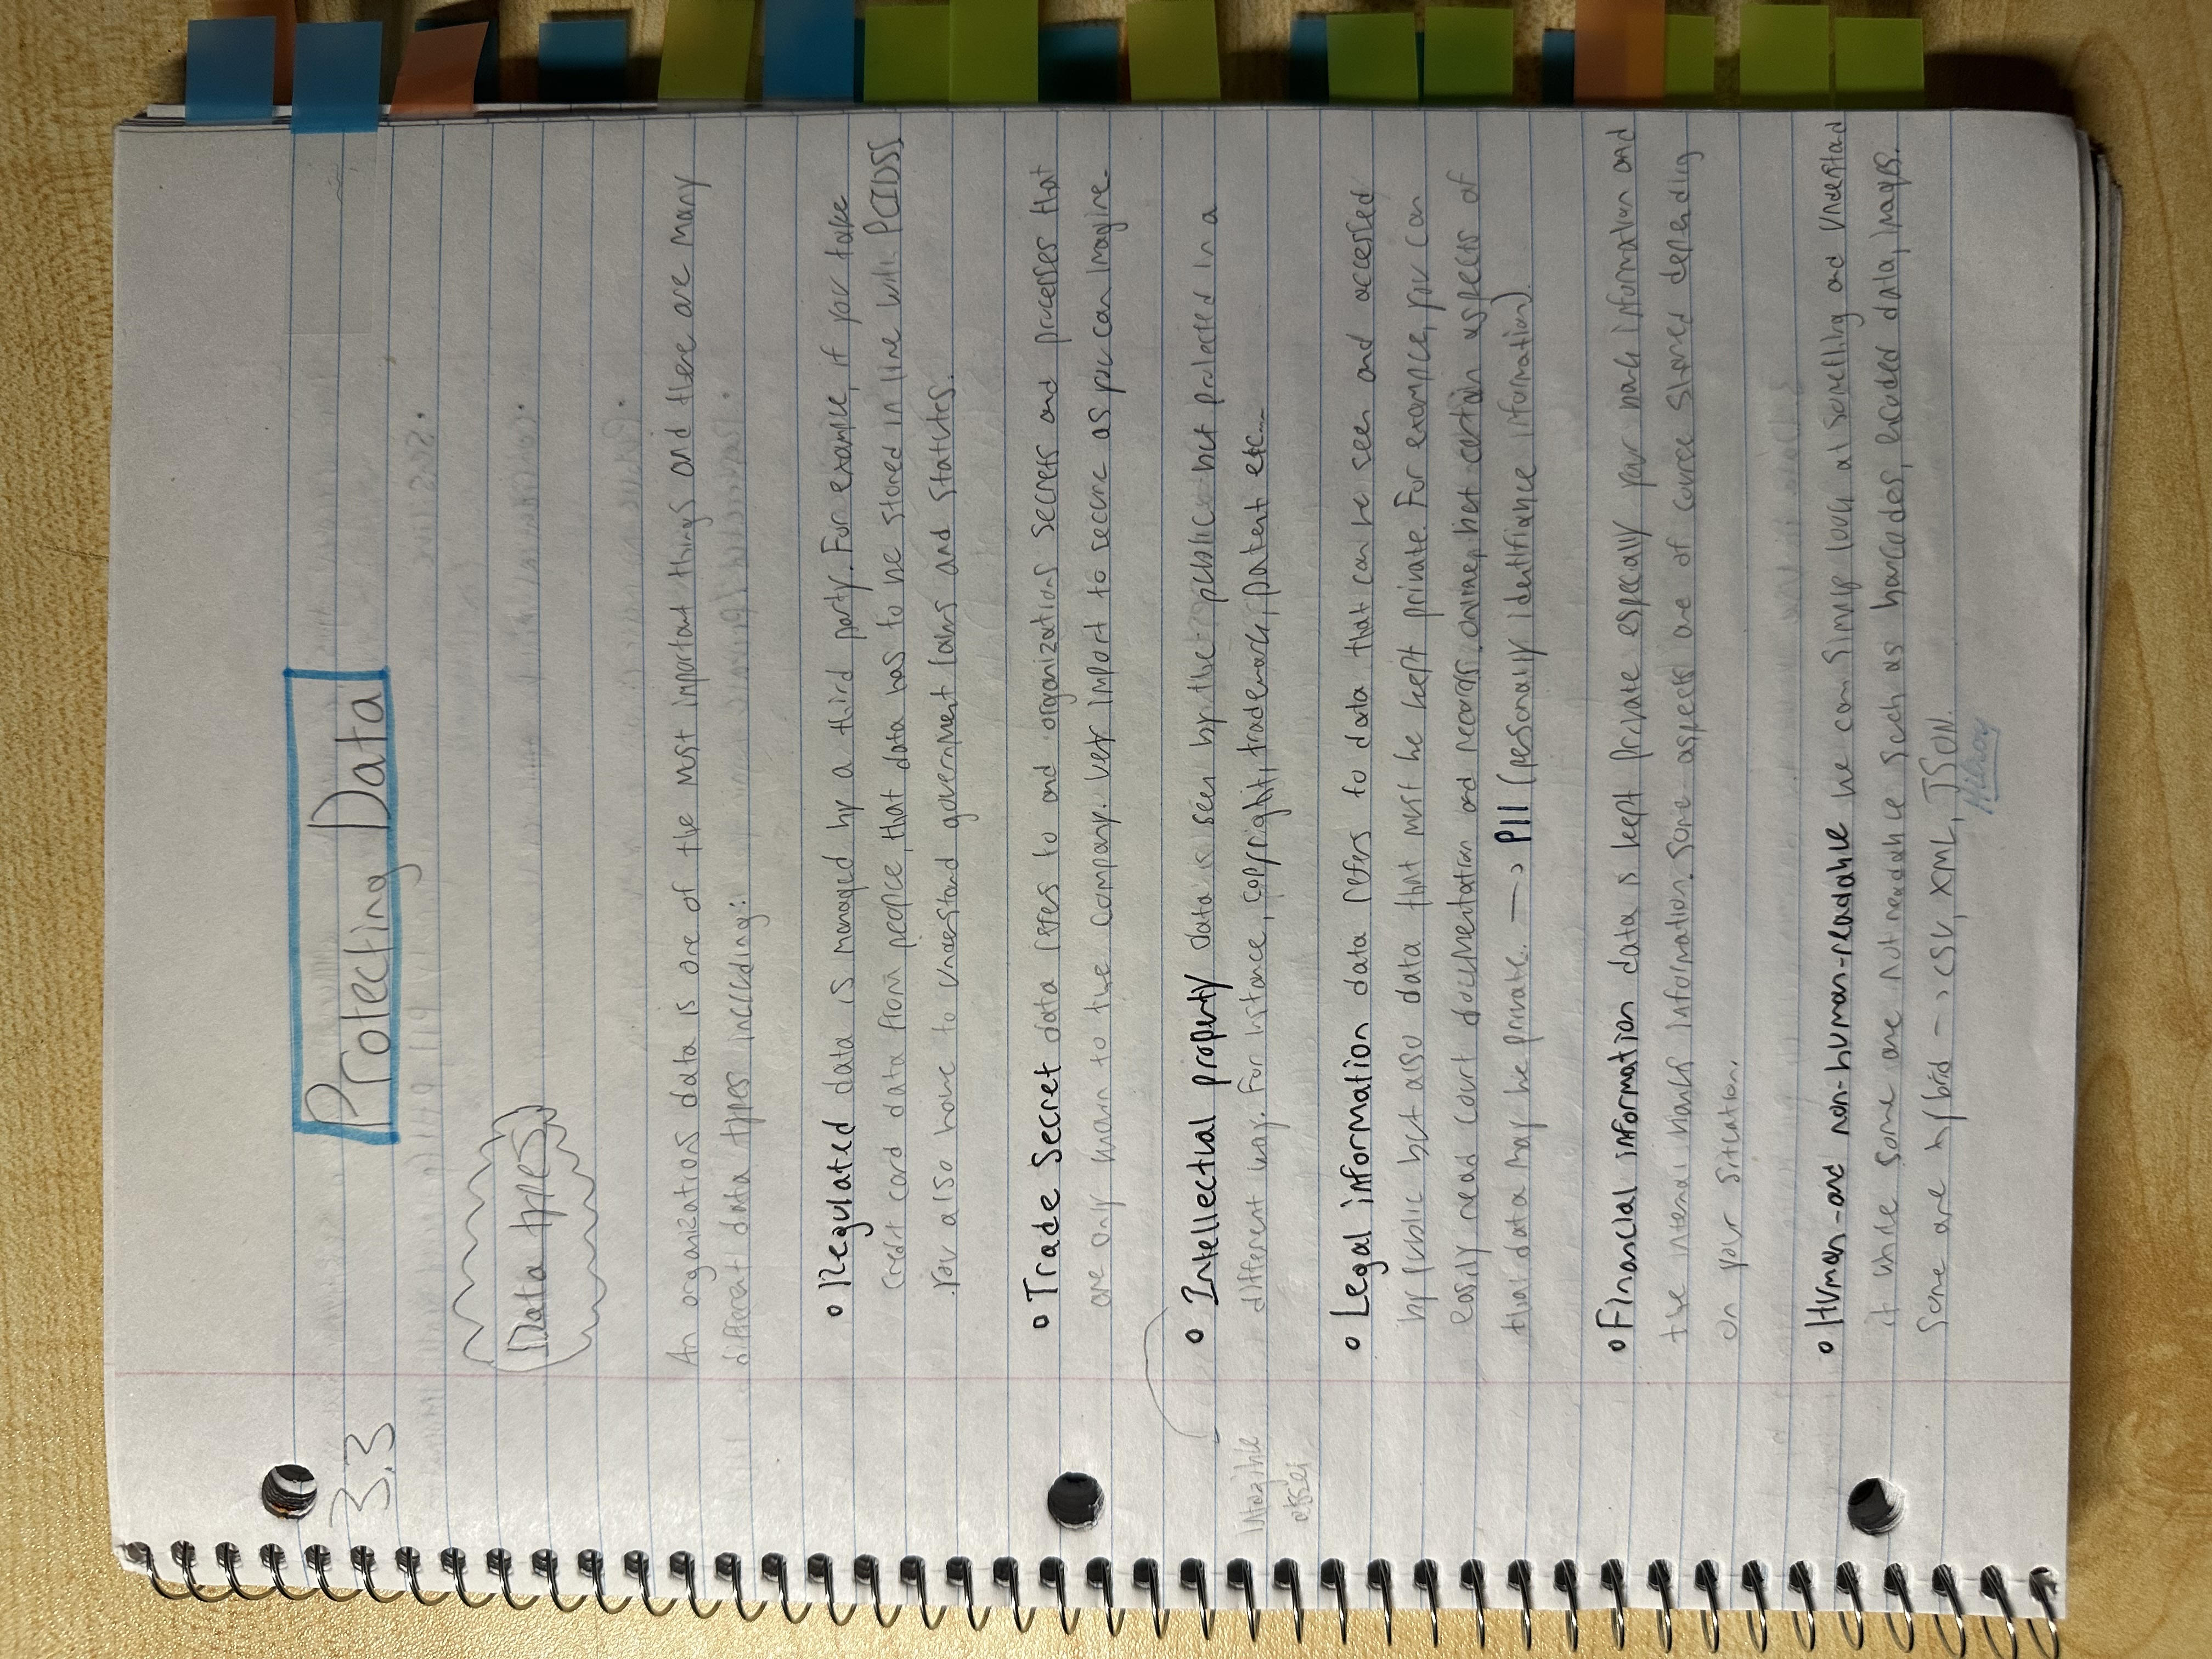 3.3
Protecting Data
Data types
An organizations data is one of the most important things and there are many
different data types including:
Regulated data is managed by a third party. For example, if you take
credit card data from people, that data has to be stored in line with PCIDSS
You also have to understand government laws and statutes.
Trade Secret data refers to and organizations secrets and processes that
are only known to the company. Very import to secure as you can imagine.
Intellectual property data is seen by the public but protected in a
different way. For instance, copyright, trademark, patent etc...
Legal information data refers to data that can be seen and accessed
by public but also data that must be kept private. For example, you can
easily read court documentation and records online, but certain aspects of
that data may be private. → PII (personally identifiable information).
Financial information data is kept private especially your bank information and
the internal banks information. Some aspects are of course shared depending
on your situation.
Human-and non-human-readable we can simply look at something and understand
it while some are not readable such as barcodes, encoded data, images.
Some are hybrid → CSV, XML, JSON.